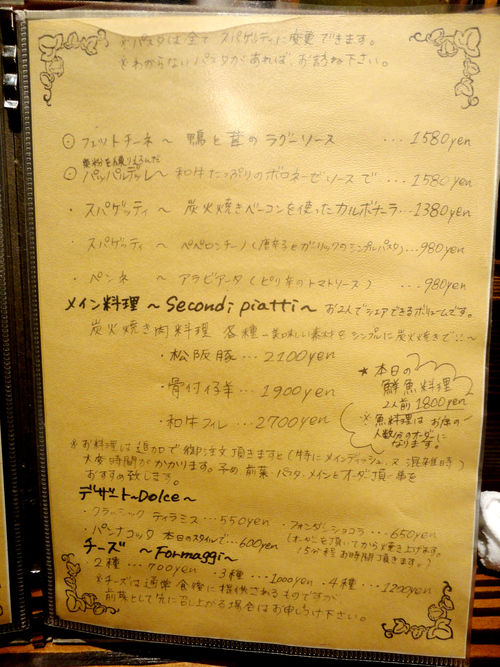 ※パスタは全て スパゲルティに変更できます。
※わからないパスタがあれば、お訪ね下さい。
フェットチーネ～ 鴨と茸のラグーソース ･･･1580yen
パッパルデッレ～ 和牛たっぷりのボロネーゼソースで ･･･1580yen
・スパゲッティ～ 炭火焼きベーコンを使ったカルボナーラ･･･1380yen
・スパゲッティ～ ペペロンチーノ(唐辛子とガーリックのシンプルパスタ)･･･980yen
・ペンネ～ アラビアータ(ピリ辛のトマトソース) ･･･980yen
メイン料理 ~Secondi piatti~ お2人でシェアできるボリュームです。
炭火焼き肉料理 各種 ～美味しい素材をシンプルに炭火焼きで!!～
・松阪豚･･･2100yen
・骨付仔羊･･･1900yen
・和牛フィレ･･･2700yen
★本日の
鮮魚料理
2人前 1800yen
※魚料理はお席の
人数分のオーダーに
なります。
※お料理は追加で御注文頂きますと(特にメインディッシュ、又 混雑時)
大変時間がかかります。予め、前菜 パスタ・メインとオーダー頂く事を
おすすめ致します。
デザート~Dolce~
・クラーシック ティラミス･･･550yen
・フォンダンショコラ･･･650yen
(オーダーを頂いてから焼き上げます。
15分程お時間頂きます。)
・パンナコッタ 本日のスタイルで･･･600yen
チーズ ~Formaggi~
2種･･･700yen ・3種･･･1000yen ・4種･･･1200yen
※チーズは通常食後に提供されるものですが、
前菜として先に召し上がる場合はお申し付け下さい。